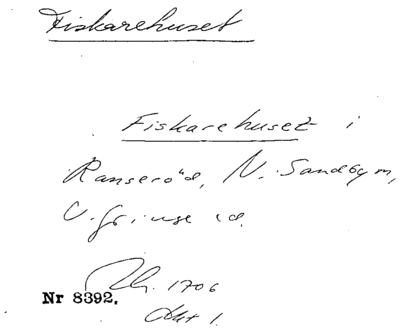 Fiskarehuset
Fiskarehuset i
Ranseröd, N. Sandby sn,
V. Göinge hd.
1706
Nr 8392.
Akt 1.